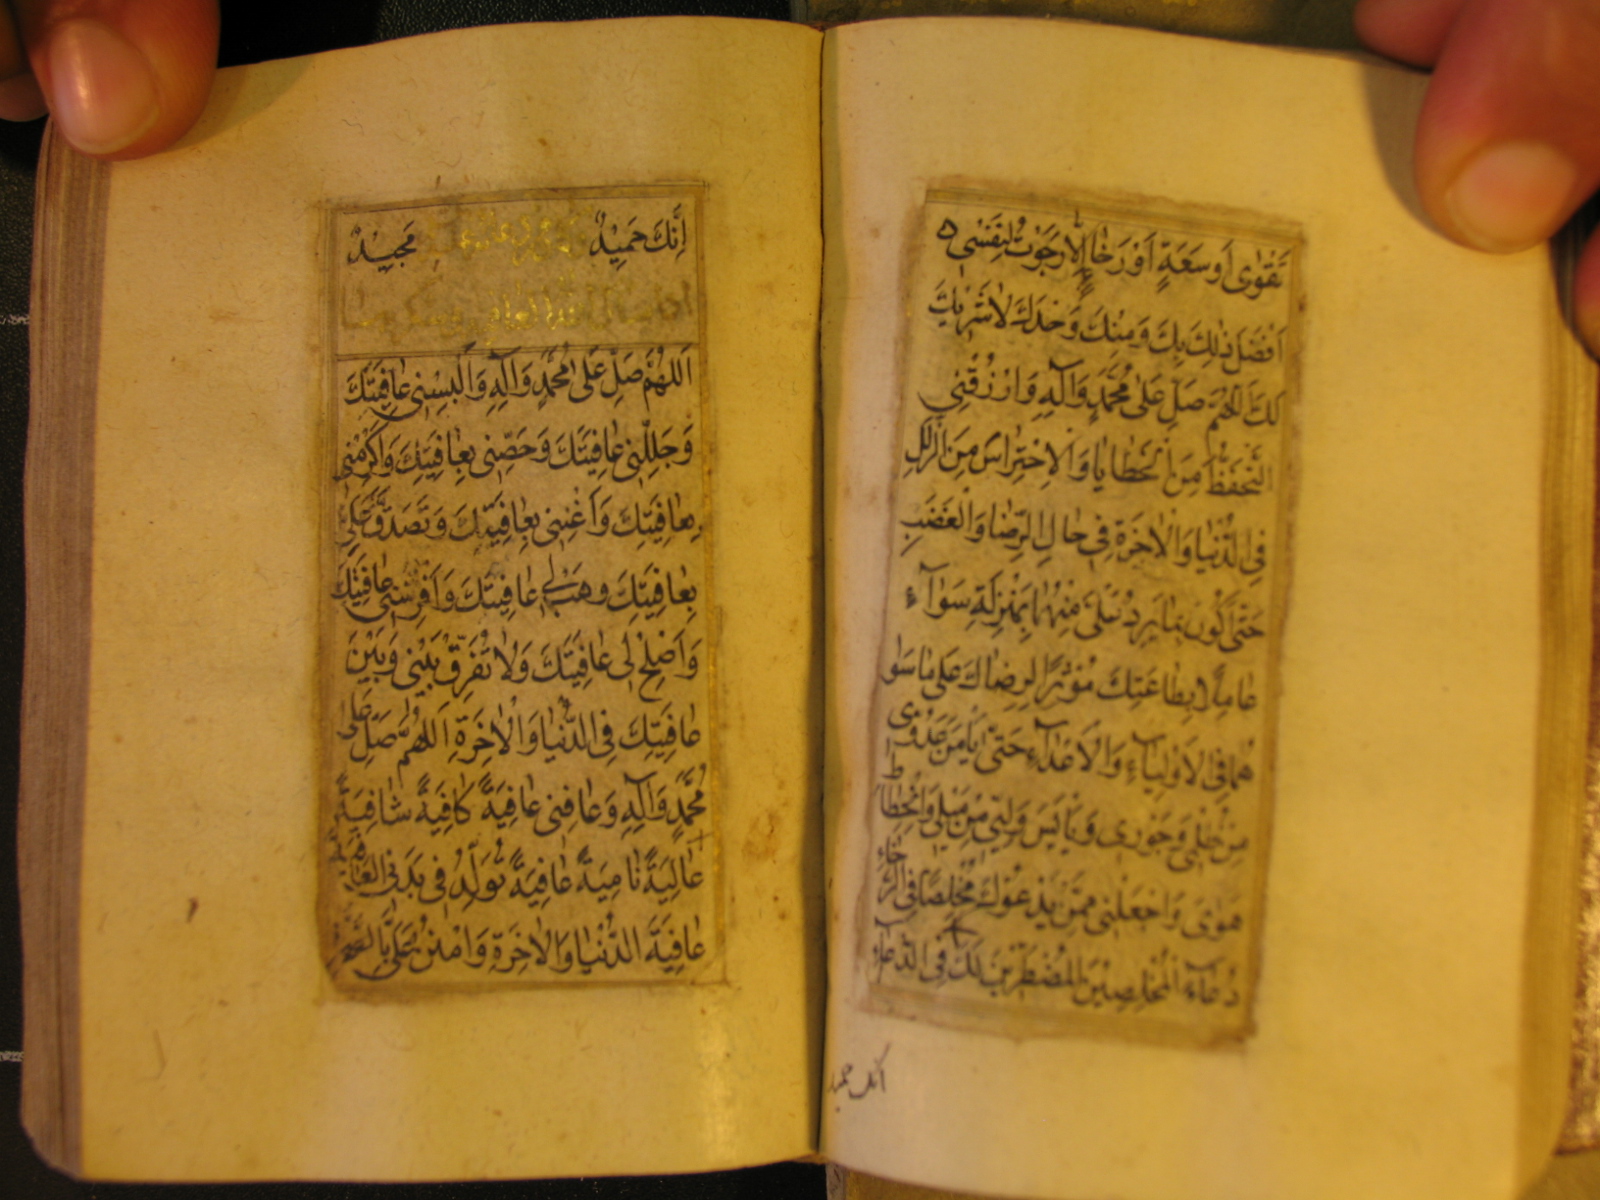 تَقْوٰى اَوْ سَعَةٍ اَوْ رَخٰاءٍ اِلّٰا رَجَوْتُ لِنَفْسٖى
اَفْضَلَ ذٰلِكَ بِكَ وَمِنْكَ وَحْدَكَ لٰا شَرٖيكَ
لَكَ اَللّٰهُمَّ صَلِّ عَلٰى مُحَمَّدٍ وَاٰلِهٖ وَارْزُقْنِي
التَّحَفُّظَ مِنَ الْخَطٰايٰا وَالْاِحْتِرٰاسَ مِنَ الزَّلَلِ
فِى الدُّنْيٰا وَالْاٰخِرَةِ فٖى حٰالِ الرِّضٰا وَالْغَضَبِ
حَتّٰى اَكُونَ بِمٰا يَرِدُ عَلَىَّ مِنْهُمٰا بِمَنْزِلَةٍ سَوٰآءٍ
عٰامِلًا بِطٰاعَتِكَ مُؤْثِرًا لِرِضٰاكَ عَلٰى مٰا سِوٰا
هُمٰا فِى الْاَوْلِيٰآءِ وَالْاَعْدٰآءِ حَتّٰى يَأْمَنَ عَدُوّٖى
مِنْ ظُلْمٖى وَجَوْرٖى وَيَأْيَسَ وَلِيّٖى مِنْ مَيْلٖى وَانْحِطٰاطِ
هَوٰاىَ وَاجْعَلْنٖى مِمَّنْ يَدْعُوكَ مُخْلِصًا فِى الرَّخٰاءِ
دُعٰآءَ الْمُخْلِصٖينَ الْمُضْطَرّٖينَ لَكَ فِى الدُّعٰآءِ
انك حميد
اِنَّكَ حَمٖيدٌ مَجٖيدٌ
اَللّٰهُمَّ صَلِّ عَلٰى مُحَمَّدٍ وَاٰلِهٖ وَاَلْبِسْنٖى عٰافِيَتَكَ
وَجَلِّلْنٖى عٰافِيَتَكَ وَحَصِّنّٖى بِعٰافِيَتِكَ وَاَكْرِمْنٖى
بِعٰافِيَتِكَ وَاَغْنِنٖى بِعٰافِيَتِكَ وَتَصَدَّقْ عَلَىَّ
بِعٰافِيَتِكَ وَهَبْ لٖى عٰافِيَتَكَ وَاَفْرِشْنٖى عٰافِيَتَكَ
وَاَصْلِحْ لٖى عٰافِيَتَكَ وَلٰا تُفَرِّقْ بَيْنٖى وَبَيْنَ
عٰافِيَتِكَ فِى الدُّنْيٰا وَالْاٰخِرَةِ اَللّٰهُمَّ صَلِّ عَلٰى
مُحَمَّدٍ وَاٰلِهٖ وَعٰافِنٖى عٰافِيَةً كٰافِيَةً شٰافِيَةً
عٰالِيَةً نٰامِيَةً عٰافِيَةً تُوَلِّدُ فٖى بَدَنِى الْعٰافِيَةَ
عٰافِيَةَ الدُّنْيٰا وَالْاٰخِرَةِ وَامْنُنْ عَلَىَّ بِالصِّحَّةِ